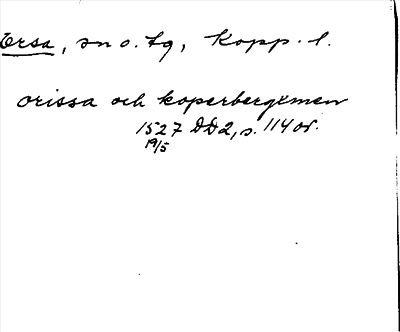 Orsa, sn o. tg, Kopp. l.
orissa och koperbergxmen
1527 DD2, s. 114 or.
19/5